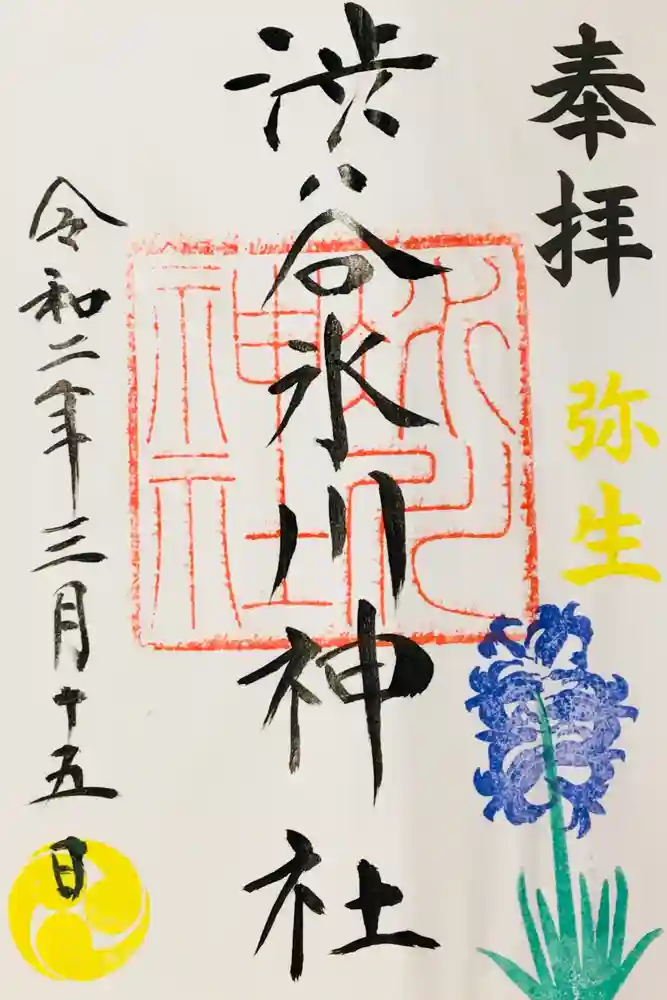 奉拝
弥生
渋谷氷川神社
氷川神社
令和二年三月十五日